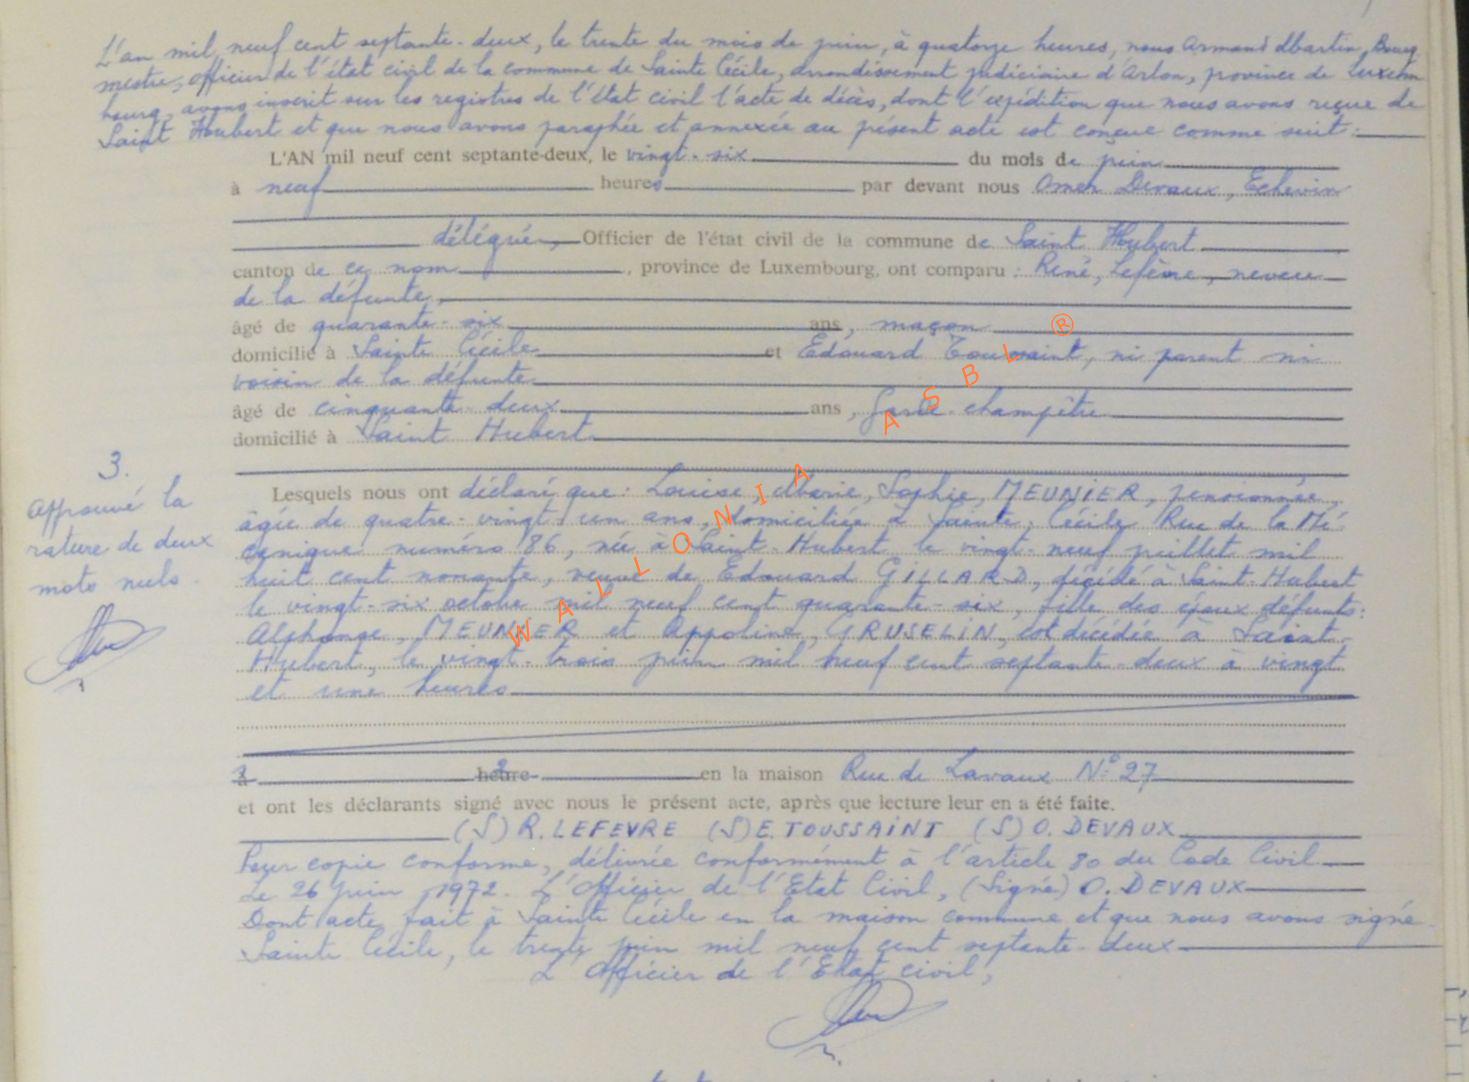 L'an mil neuf cent septante-deux, le trente du mois de juin, à quatorze heures, nous Armand Martin, Bourg
mestre, officier de l'état civil de la commune de Sainte Cécile, arrondissement judiciaire d'Arlon, province de Luxem
bourg, avons inscrit sur les registres de l'état civil l'acte de décès, dont l'expédition que nous avons reçue de
Saint Hubert et que nous avons paraphée et annexée au présent acte est conçue comme suit :
L'AN mil neuf cent septante-deux, le vingt-six du mois de juin
à neuf heures par devant nous Omer Devaux, Echevin
délégué, Officier de l'état civil de la commune de Saint Hubert
canton de ce nom, province de Luxembourg, ont comparu : René, Lefèvre, neveu
de la défunte,
âgé de quarante-six ans, maçon
domicilié à Sainte Cécile et Edouard Toussaint, ni parent ni
voisin de la défunte
âgé de cinquante-deux ans, Garde-champêtre
domicilié à Saint Hubert
3.
Approuvé la
rature de deux
mots nuls.
Lesquels nous ont déclaré que : Louise, Marie, Sophie, MEUNIER, pensionnée,
âgée de quatre-vingt un ans, domiciliée à Sainte, Cécile Rue de la Mé-
canique numéro 86, née à Saint-Hubert le vingt-neuf juillet mil
huit cent nonante, veuve de Edouard GILLARD, décédé à Saint-Hubert
le vingt-six octobre mil neuf cent quarante-six, fille des époux défunts:
Alphonse, MEUNIER et Appoline, GRUSELIN, est décédée à Saint-
Hubert, le vingt-trois juin mil neuf cent septante-deux à vingt
et une heures
à heure en la maison Rue de Lavaux N° 27
et ont les déclarants signé avec nous le présent acte, après que lecture leur en a été faite.
(S) R. LEFEVRE (S) E. TOUSSAINT (S) O. DEVAUX
Pour copie conforme, délivrée conformément à l'article 80 du Code Civil
Le 26 juin 1972. L'Officier de l'Etat Civil, (Signé) O. DEVAUX
Dont acte, fait à Sainte Cécile en la maison commune et que nous avons signé.
Sainte Cécile, le trente juin mil neuf cent septante-deux
L'Officier de l'Etat civil,
WALLONIA ASBL ®